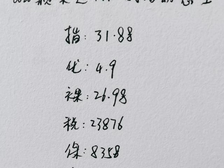 指: 31.88
优: 4.9
裸: 26.98
税: 23876
保: 8358